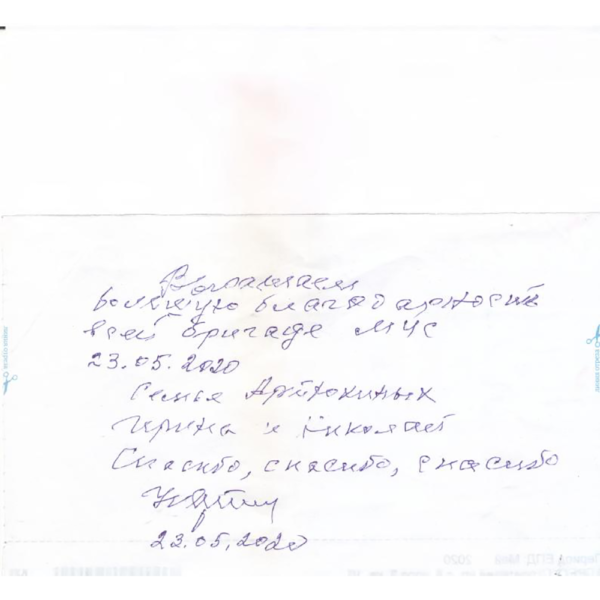 Выражаем
большую благодарность
всей бригаде МЧС
23.05.2020
Семья Артюхиных
Ирина и Николай
Спасибо, спасибо, спасибо
23.05.2020